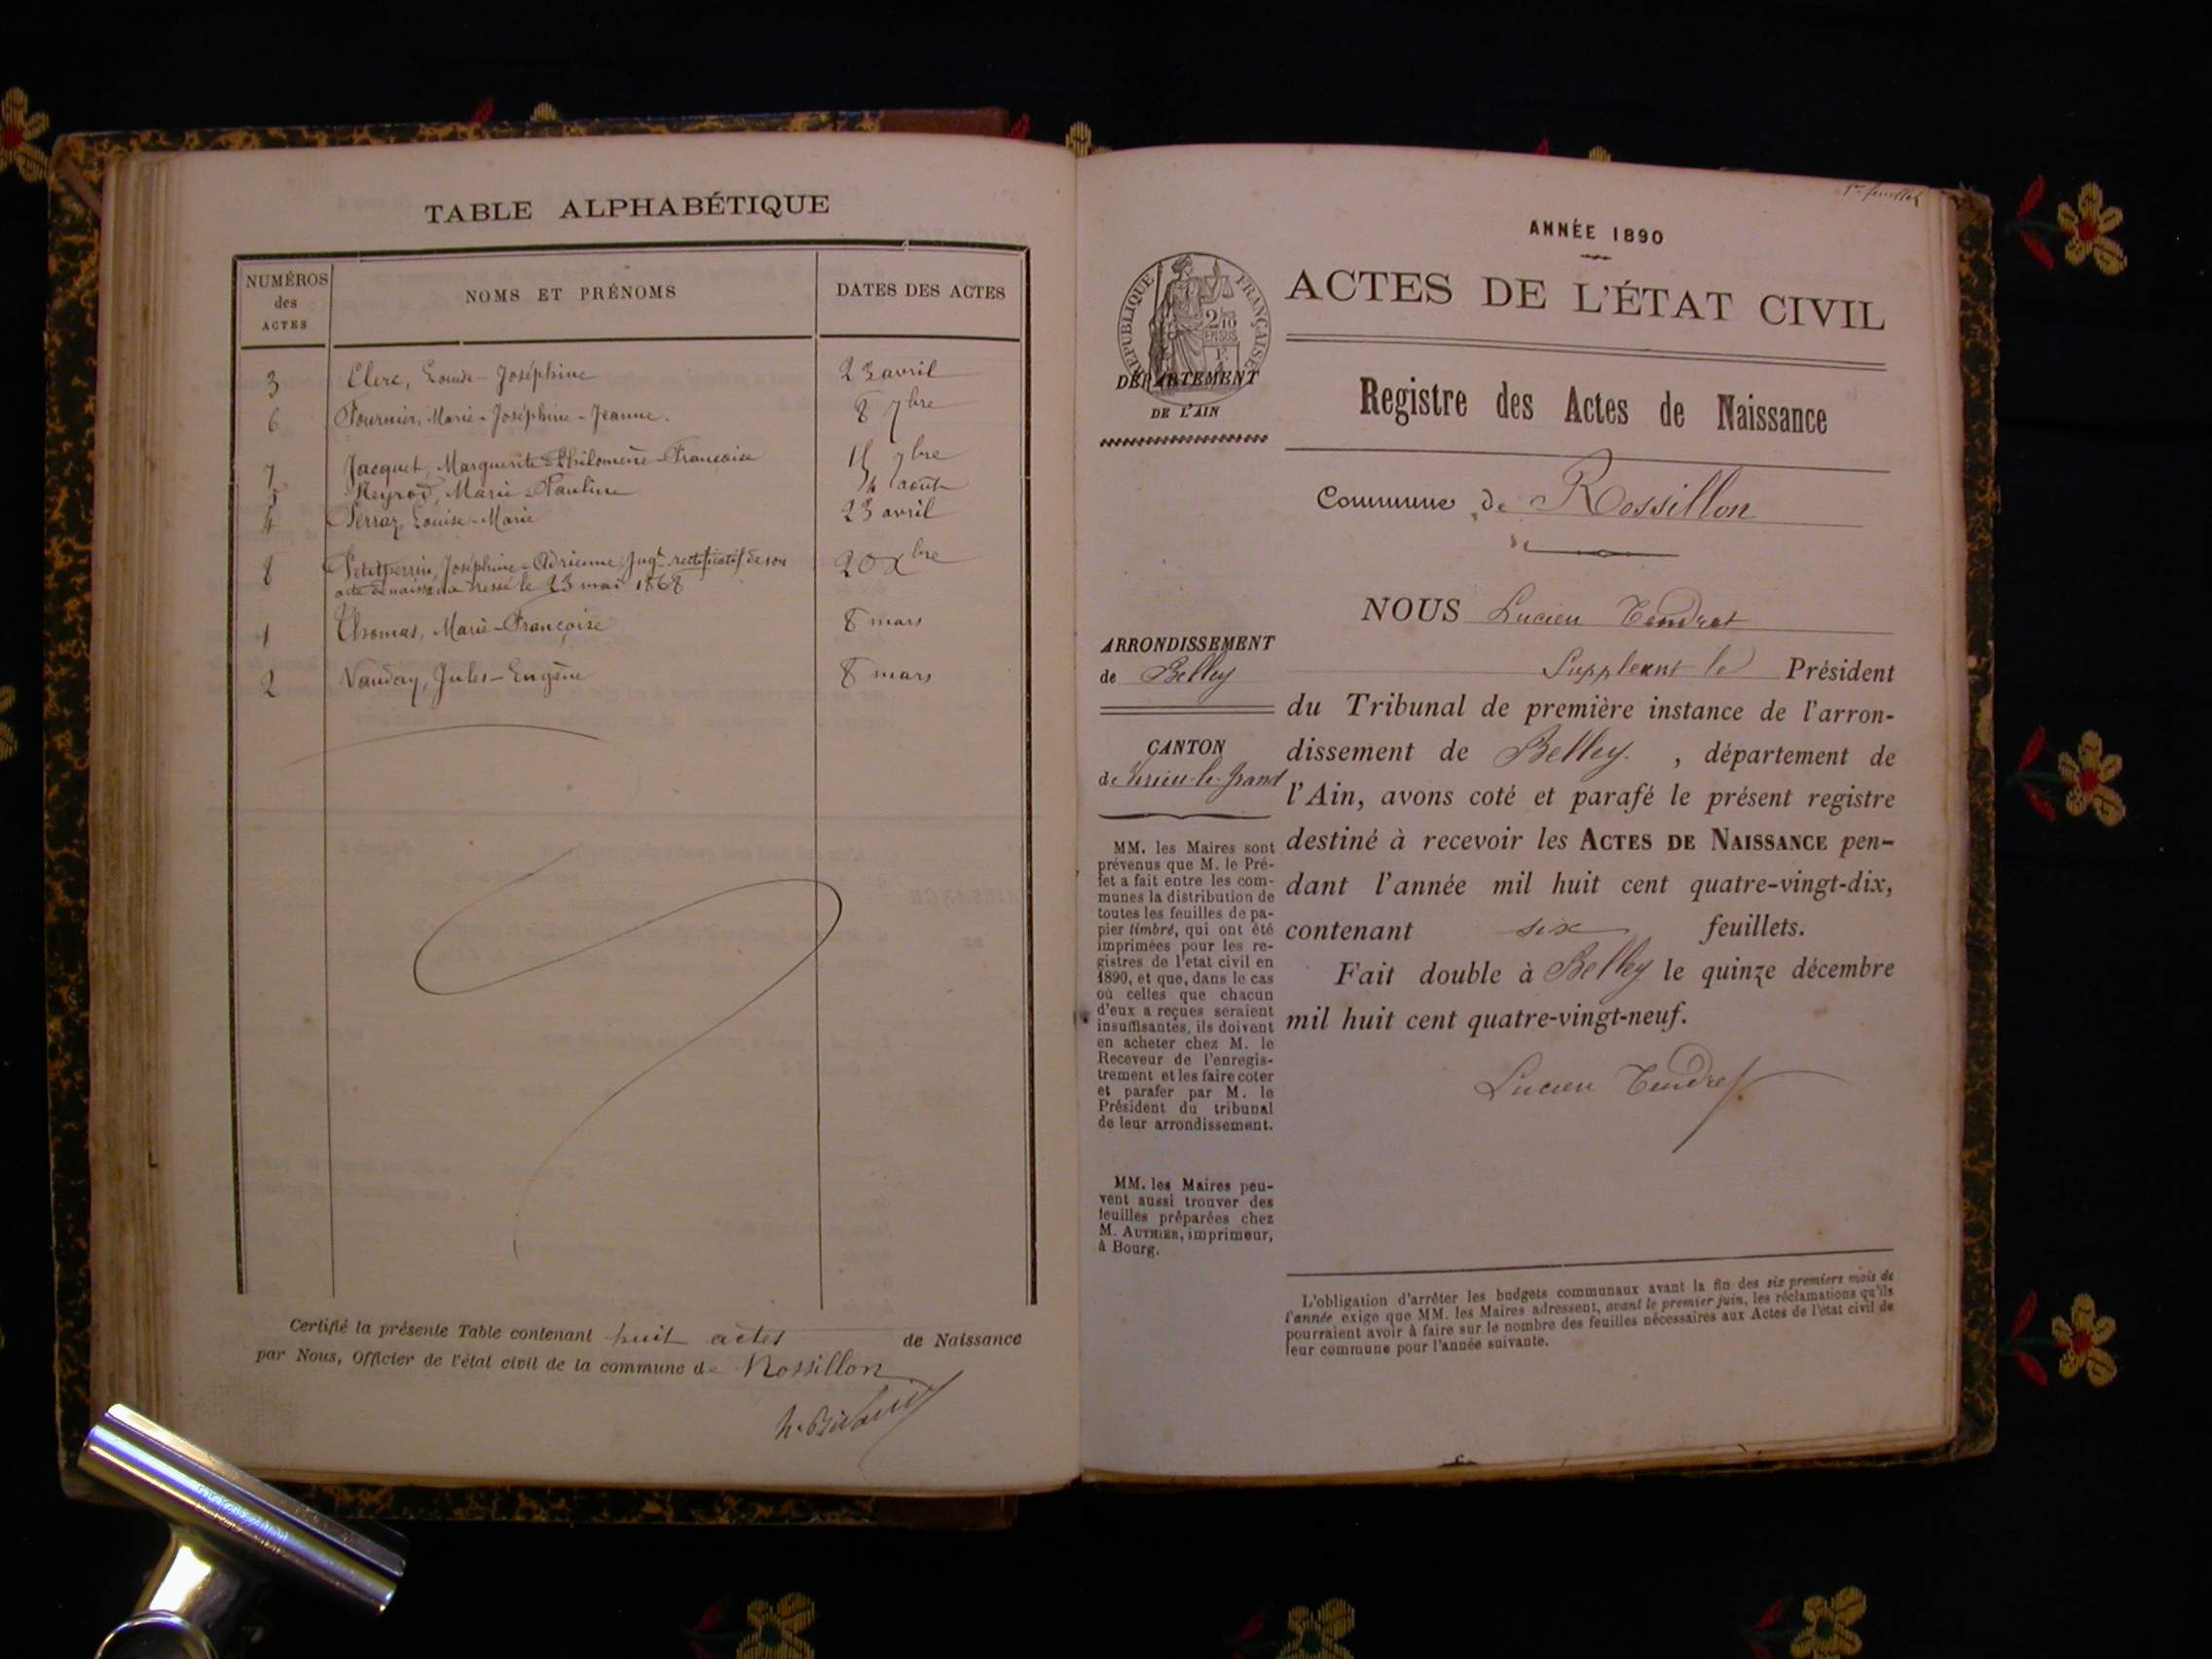 TABLE ALPHABÉTIQUE
NUMÉROS
des
ACTES
NOMS ET PRÉNOMS
DATES DES ACTES
3 Clerc, Louise-Joséphine 23 avril
6 Fournier, Marie-Joséphine-Jeanne. 8 7bre
7 Jacquet, Marguerite-Philomène-Françoise 15 7bre
5 Neyrod, Marie-Pauline 4 août
4 Perraz, Louise-Marie 23 avril
8 Petitperrin, Joséphine-Adrienne, Jugt rectificatif de son 20 Xbre
acte de naissance dressé le 23 mai 1868
1 Thomas, Marie-Françoise 8 mars
2 Vauday, Jules-Eugène 8 mars
Certifié la présente Table contenant huit actes de Naissance
par Nous, Officier de l'état civil de la commune de Rossillon
1er feuillet
ANNÉE 1890
ACTES DE L'ÉTAT CIVIL
RÉPUBLIQUE FRANÇAISE
2/10
EN SUS
DÉPARTEMENT
DE L'AIN
Registre des Actes de Naissance
Commune de Rossillon
NOUS Lucien Tendret
Suppléant le Président
du Tribunal de première instance de l'arron-
dissement de Belley. , département de
l'Ain, avons coté et parafé le présent registre
destiné à recevoir les ACTES DE NAISSANCE pen-
dant l'année mil huit cent quatre-vingt-dix,
contenant six feuillets.
Fait double à Belley le quinze décembre
mil huit cent quatre-vingt-neuf.
Lucien Tendret
ARRONDISSEMENT
de Belley
CANTON
de Virieu-le-Grand
MM. les Maires sont
prévenus que M. le Pré-
fet a fait entre les com-
munes la distribution de
toutes les feuilles de pa-
pier timbré, qui ont été
imprimées pour les re-
gistres de l'etat civil en
1890, et que, dans le cas
où celles que chacun
d'eux a reçues seraient
insuffisantes, ils doivent
en acheter chez M. le
Receveur de l'enregis-
trement et les faire coter
et parafer par M. le
Président du tribunal
de leur arrondissement.
MM. les Maires peu-
vent aussi trouver des
feuilles préparées chez
M. AUTHIER, imprimeur,
à Bourg.
L'obligation d'arrêter les budgets communaux avant la fin des six premiers mois de
l'année exige que MM. les Maires adressent, avant le premier juin, les réclamations qu'ils
pourraient avoir à faire sur le nombre des feuilles nécessaires aux Actes de l'état civil de
leur commune pour l'année suivante.